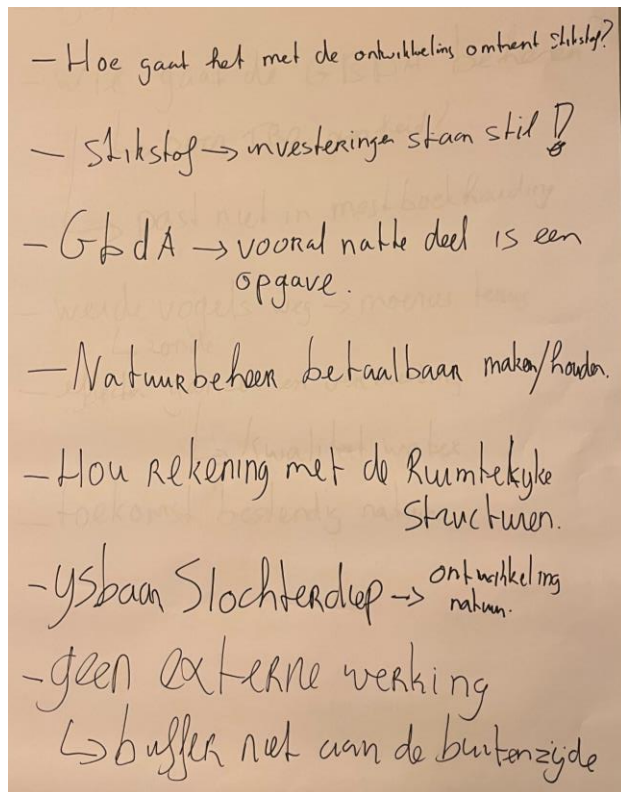 - Hoe gaat het met de ontwikkeling omtrent stikstof?
- stikstof → investeringen staan stil !
- GLdA → vooral natte deel is een
opgave.
- Natuurbeheer betaalbaar maken/houden.
- Hou rekening met de Ruimtelyke
structuren.
- ysbaan Slochterdiep → ontwikkeling
natuur.
- geen externe werking
↳ buffer niet aan de buitenzijde